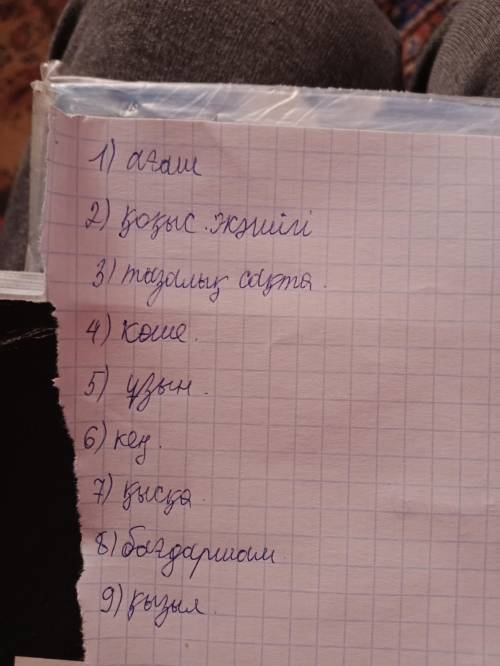 1) ағаш
2) қоқыс жәшігі
3) тазалық сақта.
4) көше.
5) ұзын.
6) кең.
7) қысқа.
8) бағдаршам
9) қызыл.